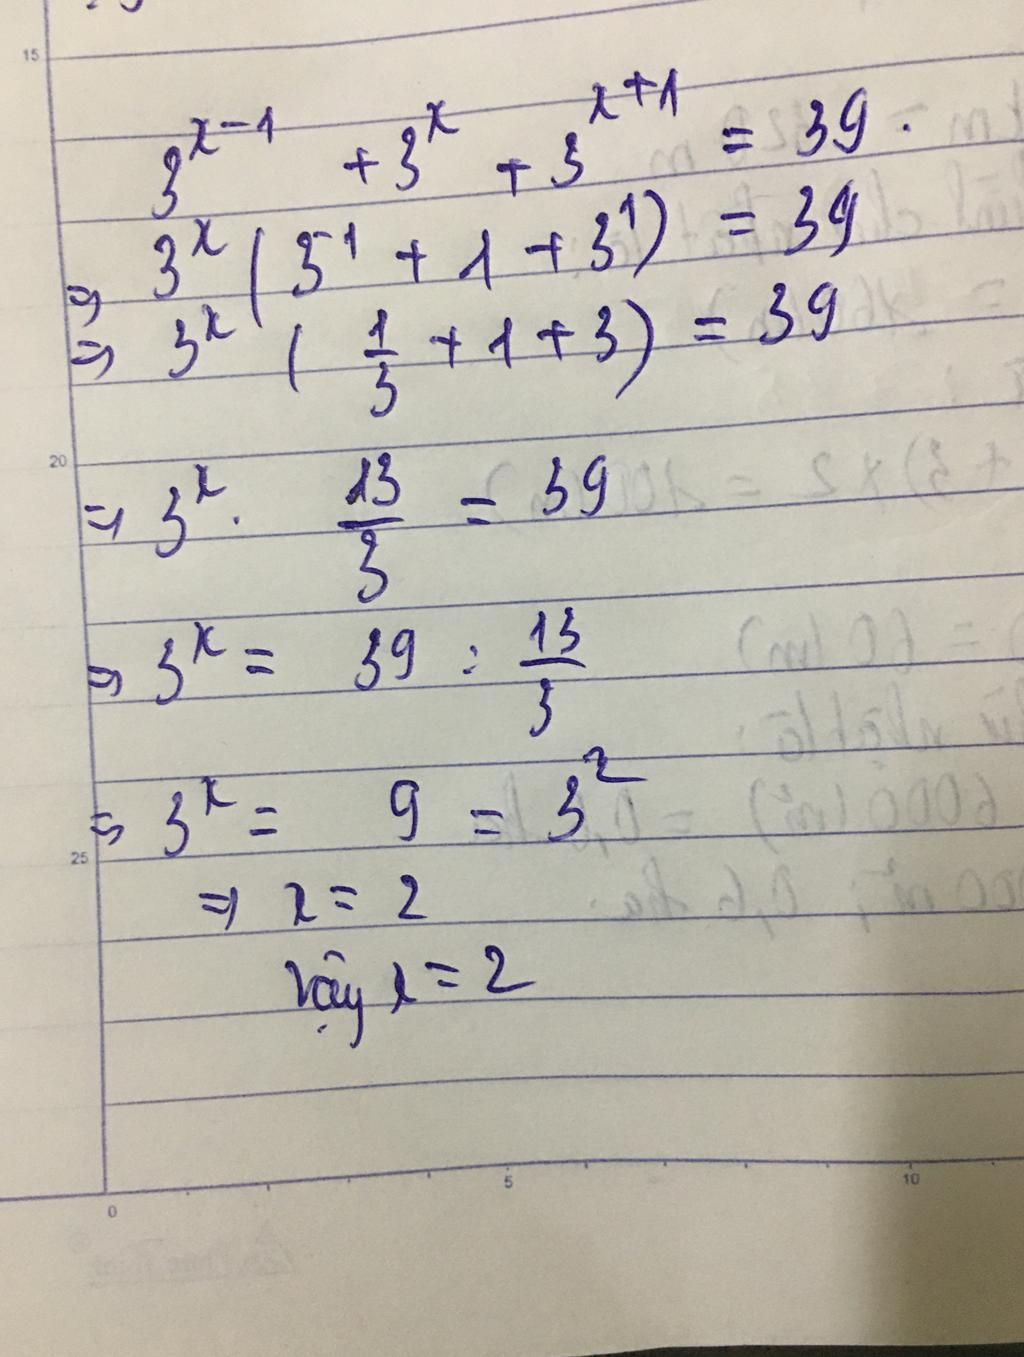 15
3^{x-1} + 3^x + 3^{x+1} = 39.
⇒ 3^x (3^{-1} + 1 + 3^1) = 39
⇒ 3^x (1/3 + 1 + 3) = 39
20
⇒ 3^x . 13/3 = 39
⇒ 3^x = 39 : 13/3
⇒ 3^x = 9 = 3^2
25
⇒ x = 2
Vậy x = 2
0 5 10